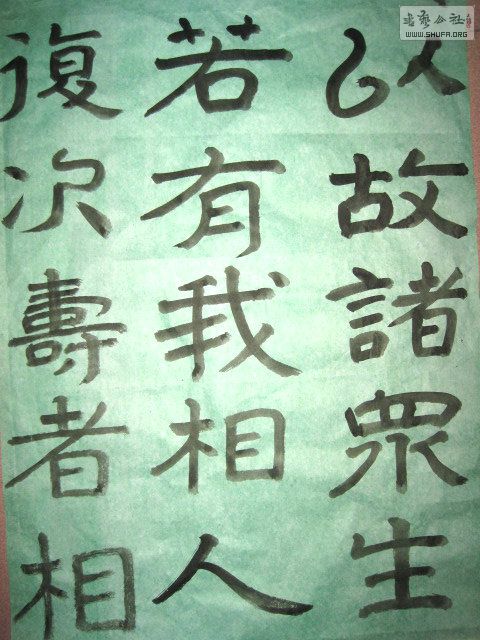 以故諸眾生
若有我相人
復次壽者相
書藝公社
WWW.SHUFA.ORG